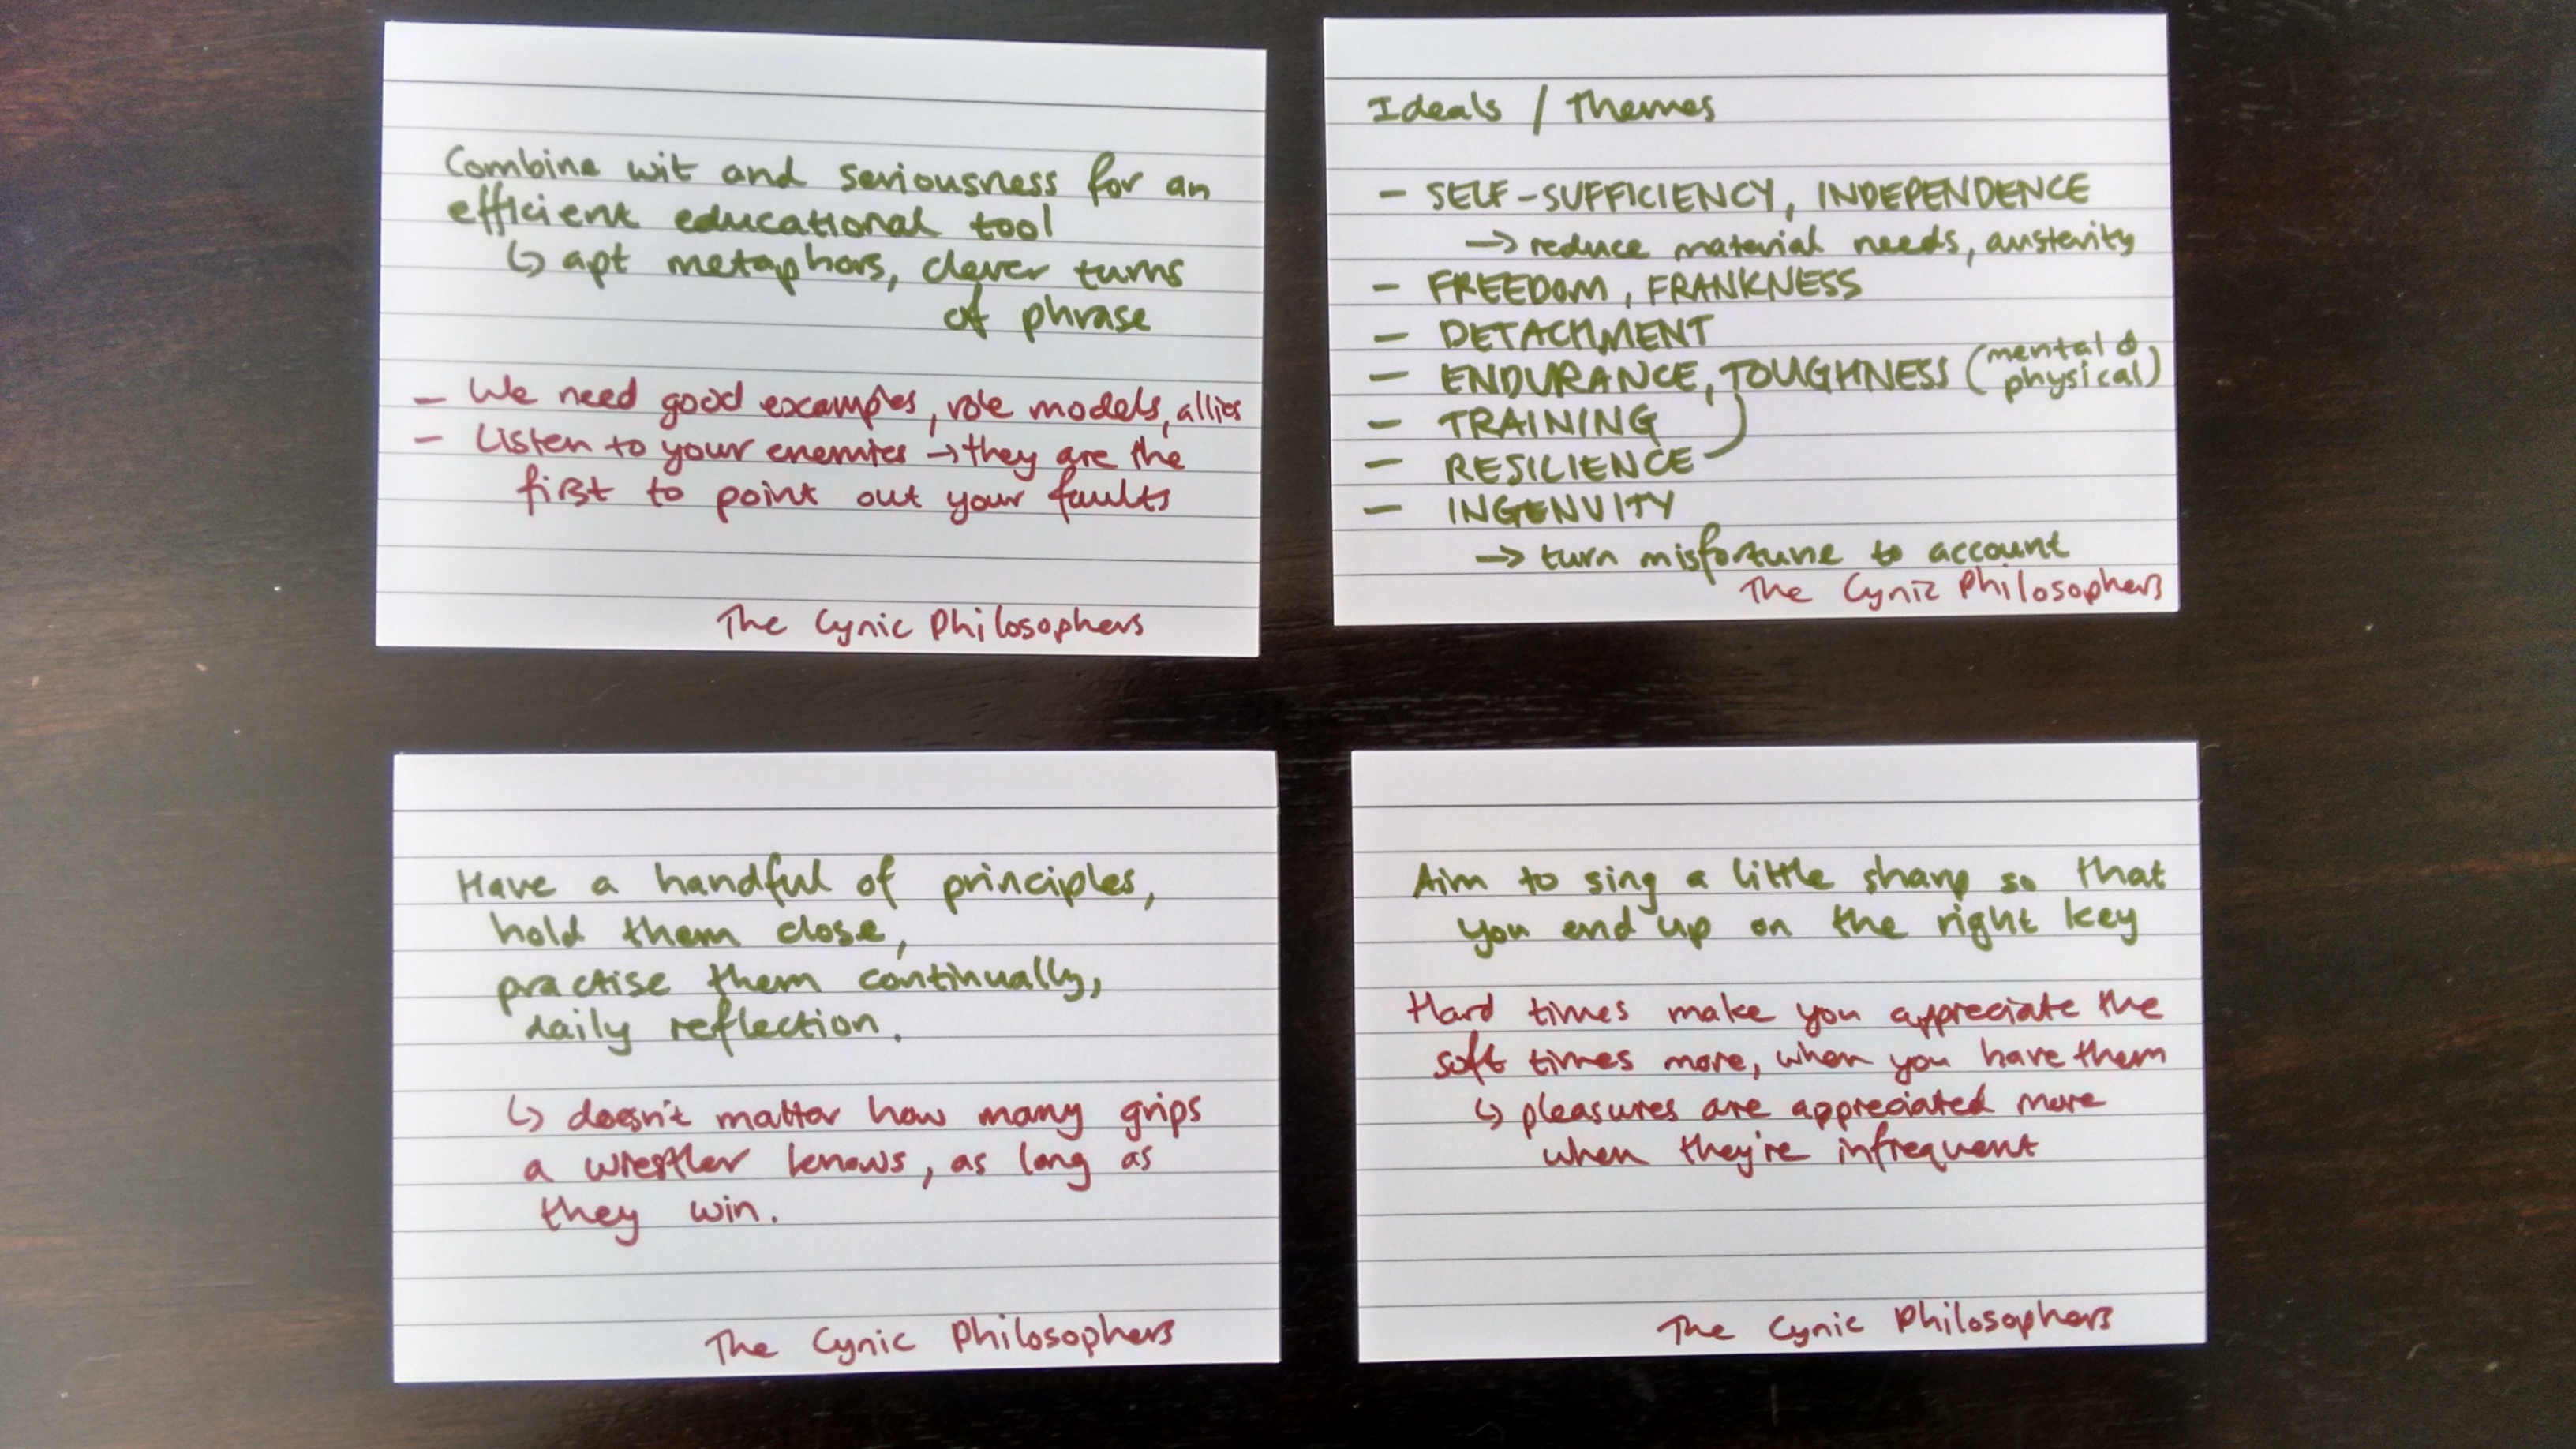 Combine wit and seriousness for an
efficient educational tool
↳ apt metaphors, clever turns
of phrase
- We need good examples, role models, allies
- Listen to your enemies → they are the
first to point out your faults
The Cynic Philosophers
Ideals / Themes
- SELF-SUFFICIENCY, INDEPENDENCE
→ reduce material needs, austerity
- FREEDOM, FRANKNESS
- DETACHMENT
- ENDURANCE, TOUGHNESS (mental & physical)
- TRAINING
- RESILIENCE
- INGENUITY
→ turn misfortune to account
The Cynic Philosophers
Have a handful of principles,
hold them close,
practise them continually,
daily reflection.
↳ doesn't matter how many grips
a wrestler knows, as long as
they win.
The Cynic Philosophers
Aim to sing a little sharp so that
you end up on the right key
Hard times make you appreciate the
soft times more, when you have them
↳ pleasures are appreciated more
when they're infrequent
The Cynic Philosophers